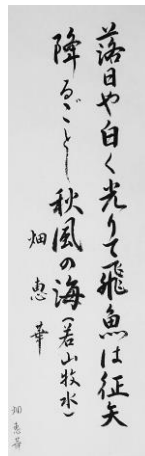 落日や白く光りて飛魚は征矢
降るごとし秋風の海（若山牧水）
畑 恵華
畑 恵華